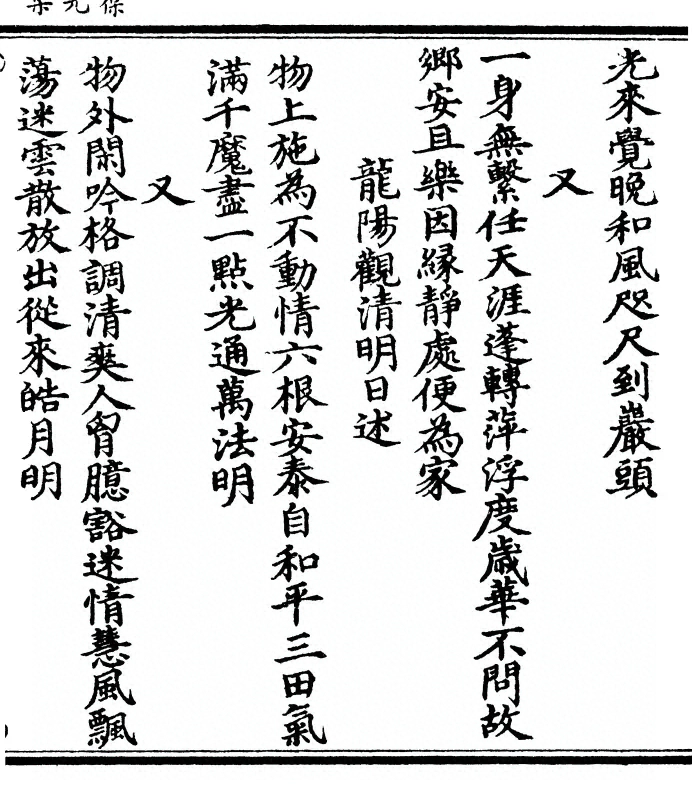 光來覺晚和風咫尺到巖頭
又
一身無繫任天涯蓬轉萍浮度歲華不問故
鄉安且樂因緣靜處便為家
龍陽觀清明日述
物上施為不動情六根安泰自和平三田氣
滿千魔盡一點光通萬法明
又
物外閑吟格調清爽人胷臆豁迷情慧風飄
蕩迷雲散放出從來皓月明